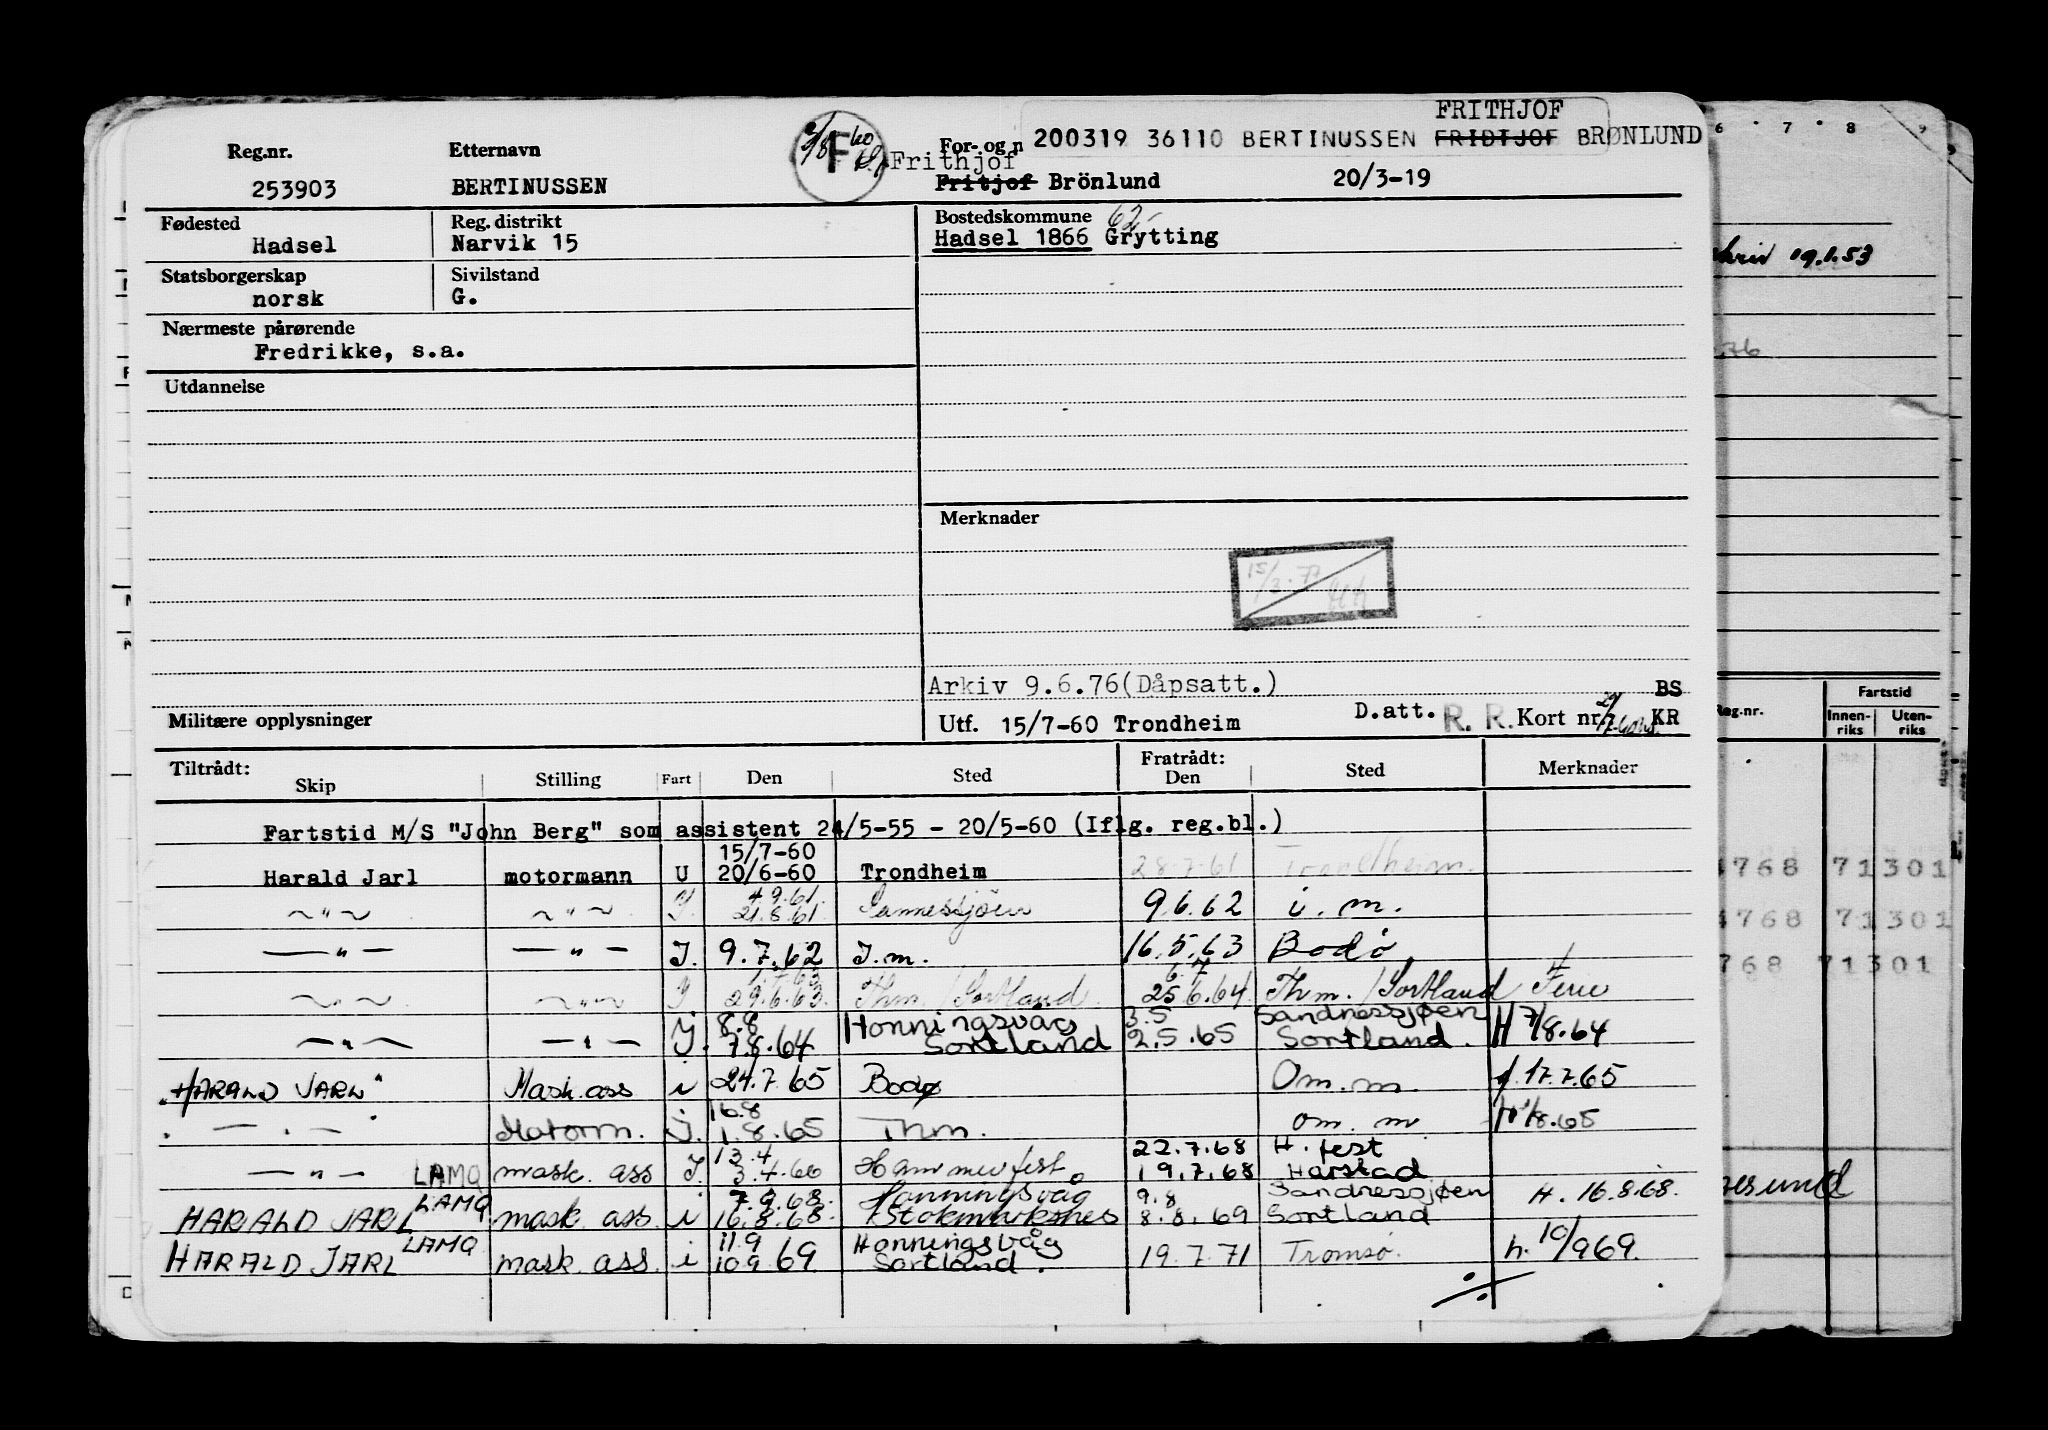 FRITHJOF
Reg.nr. Etternavn F For- og n 200319 36110 BERTINUSSEN FRIDTJOF BRØNLUND
Frithjof
253903 BERTINUSSEN Fritjof Brönlund 20/3-19
Fødested Reg. distrikt Bostedskommune 62-
Hadsel Narvik 15 Hadsel 1866 Grytting
Statsborgerskap Sivilstand
norsk G.
Nærmeste pårørende
Fredrikke, s.a.
Utdannelse
Merknader
15/3.77
Arkiv 9.6.76(Dåpsatt.) BS
Militære opplysninger Utf. 15/7-60 Trondheim D.att. R. R. Kort nr. KR
Tiltrådt: Fratrådt:
Skip Stilling Fart Den Sted Den Sted Merknader
Fartstid M/S "John Berg" som assistent 24/5-55 - 20/5-60 (Iflg. reg.bl.)
15/7-60
Harald Jarl motormann U 20/6-60 Trondheim 28.7.61 Trondheim.
4.9.61.
~"~ ~"~ I. 21.8.61. Sannesjöen 9.6.62 i. m.
—"— —"— I. 9.7.62 I.m. 16.5.63 Bodö
1.7.63 6.7
~"~ ~"~ I 29.6.63. Thm. /Sortland. 25.6.64. Thm. /Sortland Ferie
8.8 Honningsvåg 3.5 Sandnessjøen
—"— —"— I. 7.8.64 Sortland 2.5.65 Sortland. H 7/8.64
"HARALD JARL" Mask.ass i 24.7.65 Bodø Om.m. f.17.7.65
16.8
— " — Motorm. i. 1.8.65 Thm. om. m H 1/8.65
13.4 22.7.68 H.fest
—"— LAMQ mask. ass I. 3.4.66 Hammerfest 19.7.68 Harstad
LAMQ 7.9.68. Honningsvåg 9.8 Sandnessjøen
HARALD JARL mask. ass. i 16.8.68. Stokmarknes 8.8.69 Sortland H. 16.8.68.
LAMQ 11.9 Honningsvåg
HARALD JARL mask. ass. i 10.9.69 Sortland. 19.7.71 Tromsø. h. 10/969.
6 7 8 9
19.1.53
76
Reg.nr. Fartstid
Innen-riks Uten-riks
4768 71301
4768 71301
768 71301